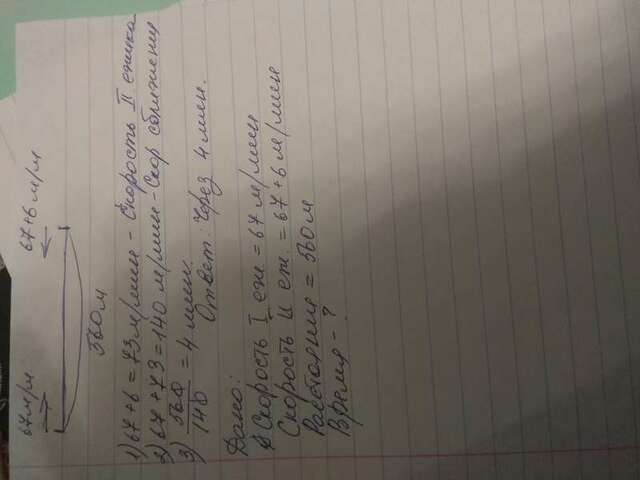 67 м/м 67+6 м/м
560 м
1) 67+6=73 м/мин - Скорость II ежика
2) 67+73=140 м/мин - Скор сближения
3) 560/140 = 4 мин.
Ответ: Через 4 мин.
Дано:
Скорость I еж = 67 м/мин
Скорость II еж. = 67+6 м/мин
Расстояние = 560 м
Время - ?